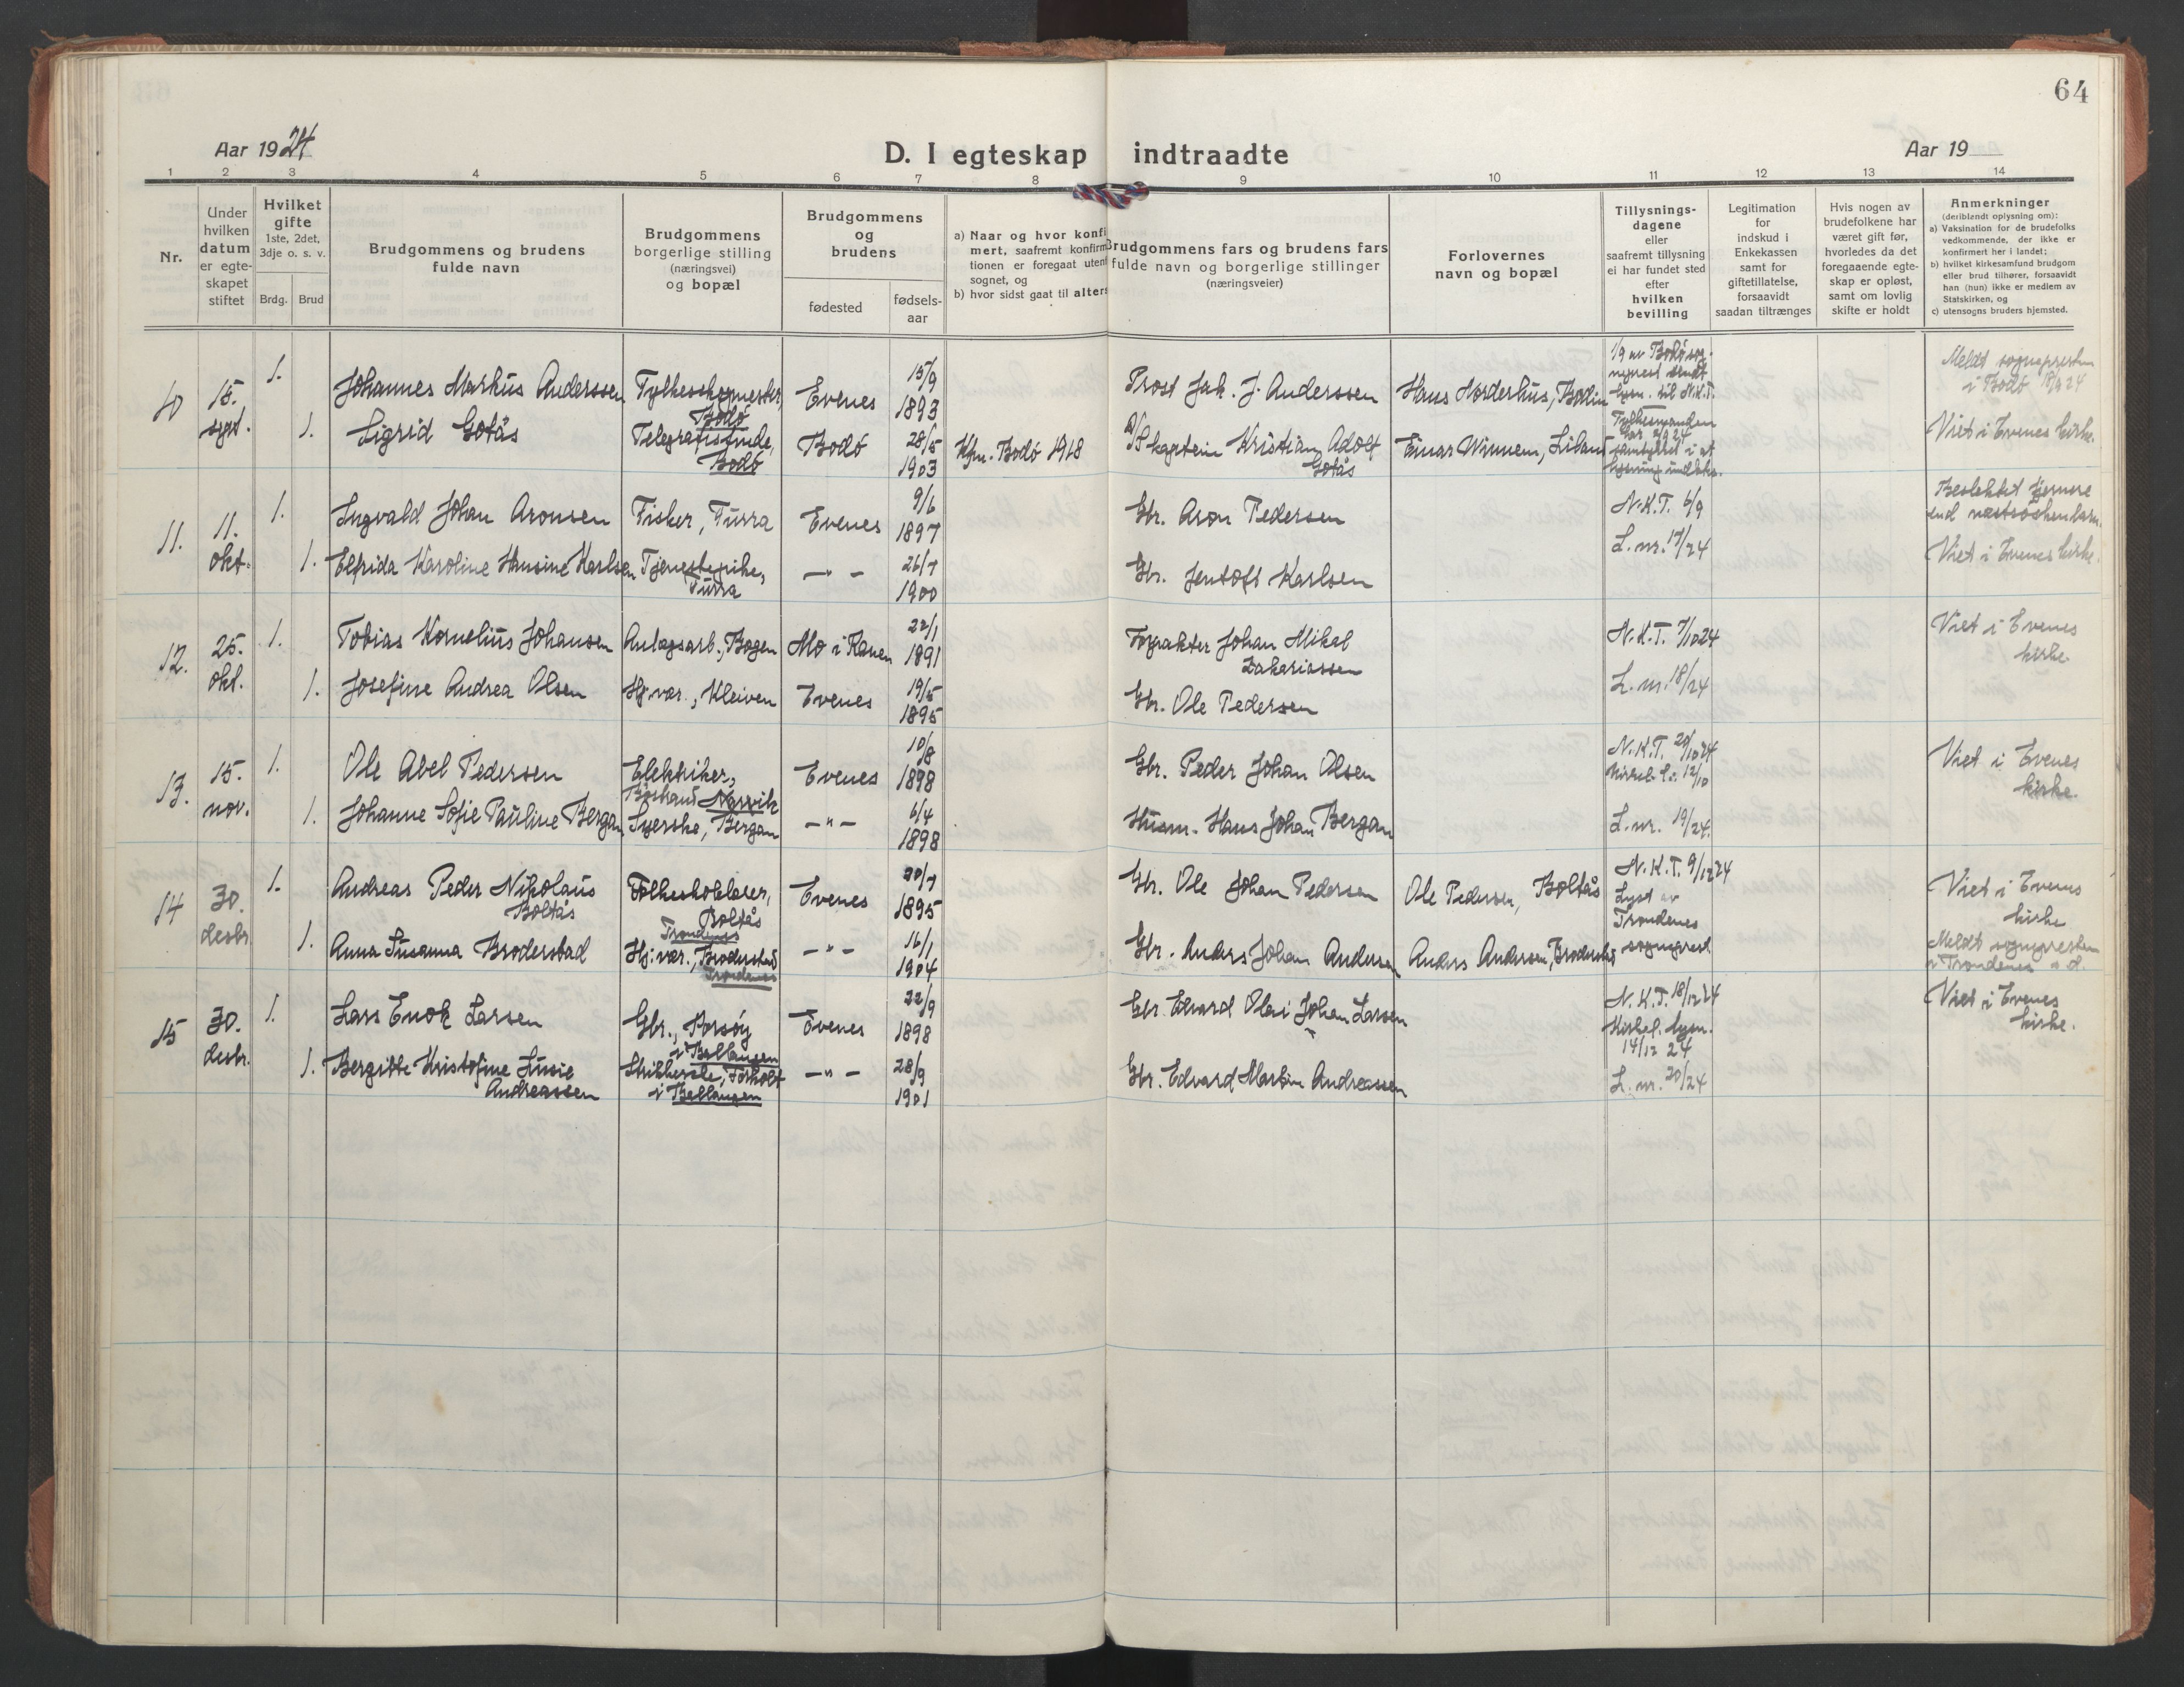 64
Aar 1924
D. I egteskap indtraadte
Aar 19
1 2 3 4 5 6 7 8 9 10 11 12 13 14
Nr.
Under
hvilken
datum
er egte-
skapet
stiftet
Hvilket
gifte
1ste, 2det,
3dje o. s. v.
Brdg. Brud
Brudgommens og brudens
fulde navn
Brudgommens
borgerlige stilling
(næringsvei)
og bopæl
Brudgommens
og
brudens
fødested
fødsels-
aar
a) Naar og hvor konfi
mert, saafremt konfirm
tionen er foregaat uten
sognet, og
b) hvor sidst gaat til alters
Brudgommens fars og brudens fars
fulde navn og borgerlige stillinger
(næringsveier)
Forlovernes
navn og bopæl
Tillysnings-
dagene
eller
saafremt tillysning
ei har fundet sted
efter
hvilken
bevilling
Legitimation
for
indskud i
Enkekassen
samt for
giftetillatelse,
forsaavidt
saadan tiltrænges
Hvis nogen av
brudefolkene har
været gift før,
hvorledes da det
foregaaende egte-
skap er opløst,
samt om lovlig
skifte er holdt
Anmerkninger
(deriblandt oplysning om):
a) Vaksination for de brudefolks
vedkommende, der ikke er
konfirmert her i landet;
b) hvilket kirkesamfund brudgom
eller brud tilhører, forsaavidt
han (hun) ikke er medlem av
Statskirken, og
c) utensogns bruders hjemsted.
10
15.
sept.
1.
Johannes Markus Anderssen
Fylkesskogmester,
Bodö
Evenes
15/9
1893
Prost Jak. J. Anderssen
Hans Norderhus, Bodin
1/9 av Bodö sog-
neprest
lysn. til N.K.T.
Meldt sognepresten
i Bodö 18/9 24
1.
Sigrid Gotås
Telegrafistinde,
Bodö
Bodö
28/5
1903
Kfm. Bodö 1918
Skaptein Kristian Adolf
Gotås
Einar Winnem, Liland
Fylkesmanden
har 2/9 24
samtykket i at
Viet i Evenes kirke.
11.
11.
okt.
1.
Ingvald Johan Aronsen
Fisker, Turra
Evenes
9/6
1897
Gbr. Aron Pedersen
N.K.T. 6/9
Beslektet fjernere
end næstsøskenbarn.
1.
Elfrida Karoline Hansine Karlsen
Tjenestepike,
Turra
— " —
26/7
1900
Gbr. Jentoft Karlsen
L. nr. 17/24
Viet i Evenes kirke.
12.
25.
okt.
1.
Tobias Kornelius Johansen
Anlægsarb., Bogen
Mo i Ranen
22/1
1891
Forpakter Johan Mikal
Zakariassen
N.K.T. 7/10 24
Viet i Evenes
kirke.
1.
Josefine Andrea Olsen
Hj. vær., Kleiven
Evenes
19/5
1895
Gbr. Ole Pedersen
L. nr. 18/24
13.
15.
nov.
1.
Ole Abel Pedersen
Elektriker,
Narvik
Evenes
10/8
1898
Gbr. Peder Johan Olsen
N.K.T. 20/10 24
12/10
Viet i Evenes
kirke.
1.
Johanne Sofie Pauline Bergan
Syerske, Bergan
— " —
6/4
1898
Husm. Hans Johan Bergan
L. nr. 19/24.
14
30.
desbr.
1.
Andreas Peder Nikolaus
Boltås
Folkeskolelærer,
Boltås
Trondenes
Evenes
20/7
1895
Gbr. Ole Johan Pedersen
Ole Pedersen, Boltås
N.K.T. 9/12 24
Lyst av
Trondenes
sogneprest
Viet i Evenes
kirke
1.
Anna Susanna Broderstad
Hj. vær., Broderstad
Trondenes
— " —
16/1
1904
Gbr. Anders Johan Andersen
Anders Andersen, Broderstad
Meldt sognepresten
i Trondenes s. d.
15
30.
desbr.
1.
Lars Enok Larsen
Gbr., Porsøy
i Ballangen
Evenes
22/9
1898
Gbr. Edvard Olai Johan Larsen
N.K.T. 18/12 24
Kirkel. lysn.
14/12 24
Viet i Evenes
kirke.
1.
Bergitte Kristofine Lusie
Andreassen
Strikkerske, Forholt
i Ballangen
— " —
28/9
1901
Gbr. Edvard Martin Andreassen
L. nr. 20/24